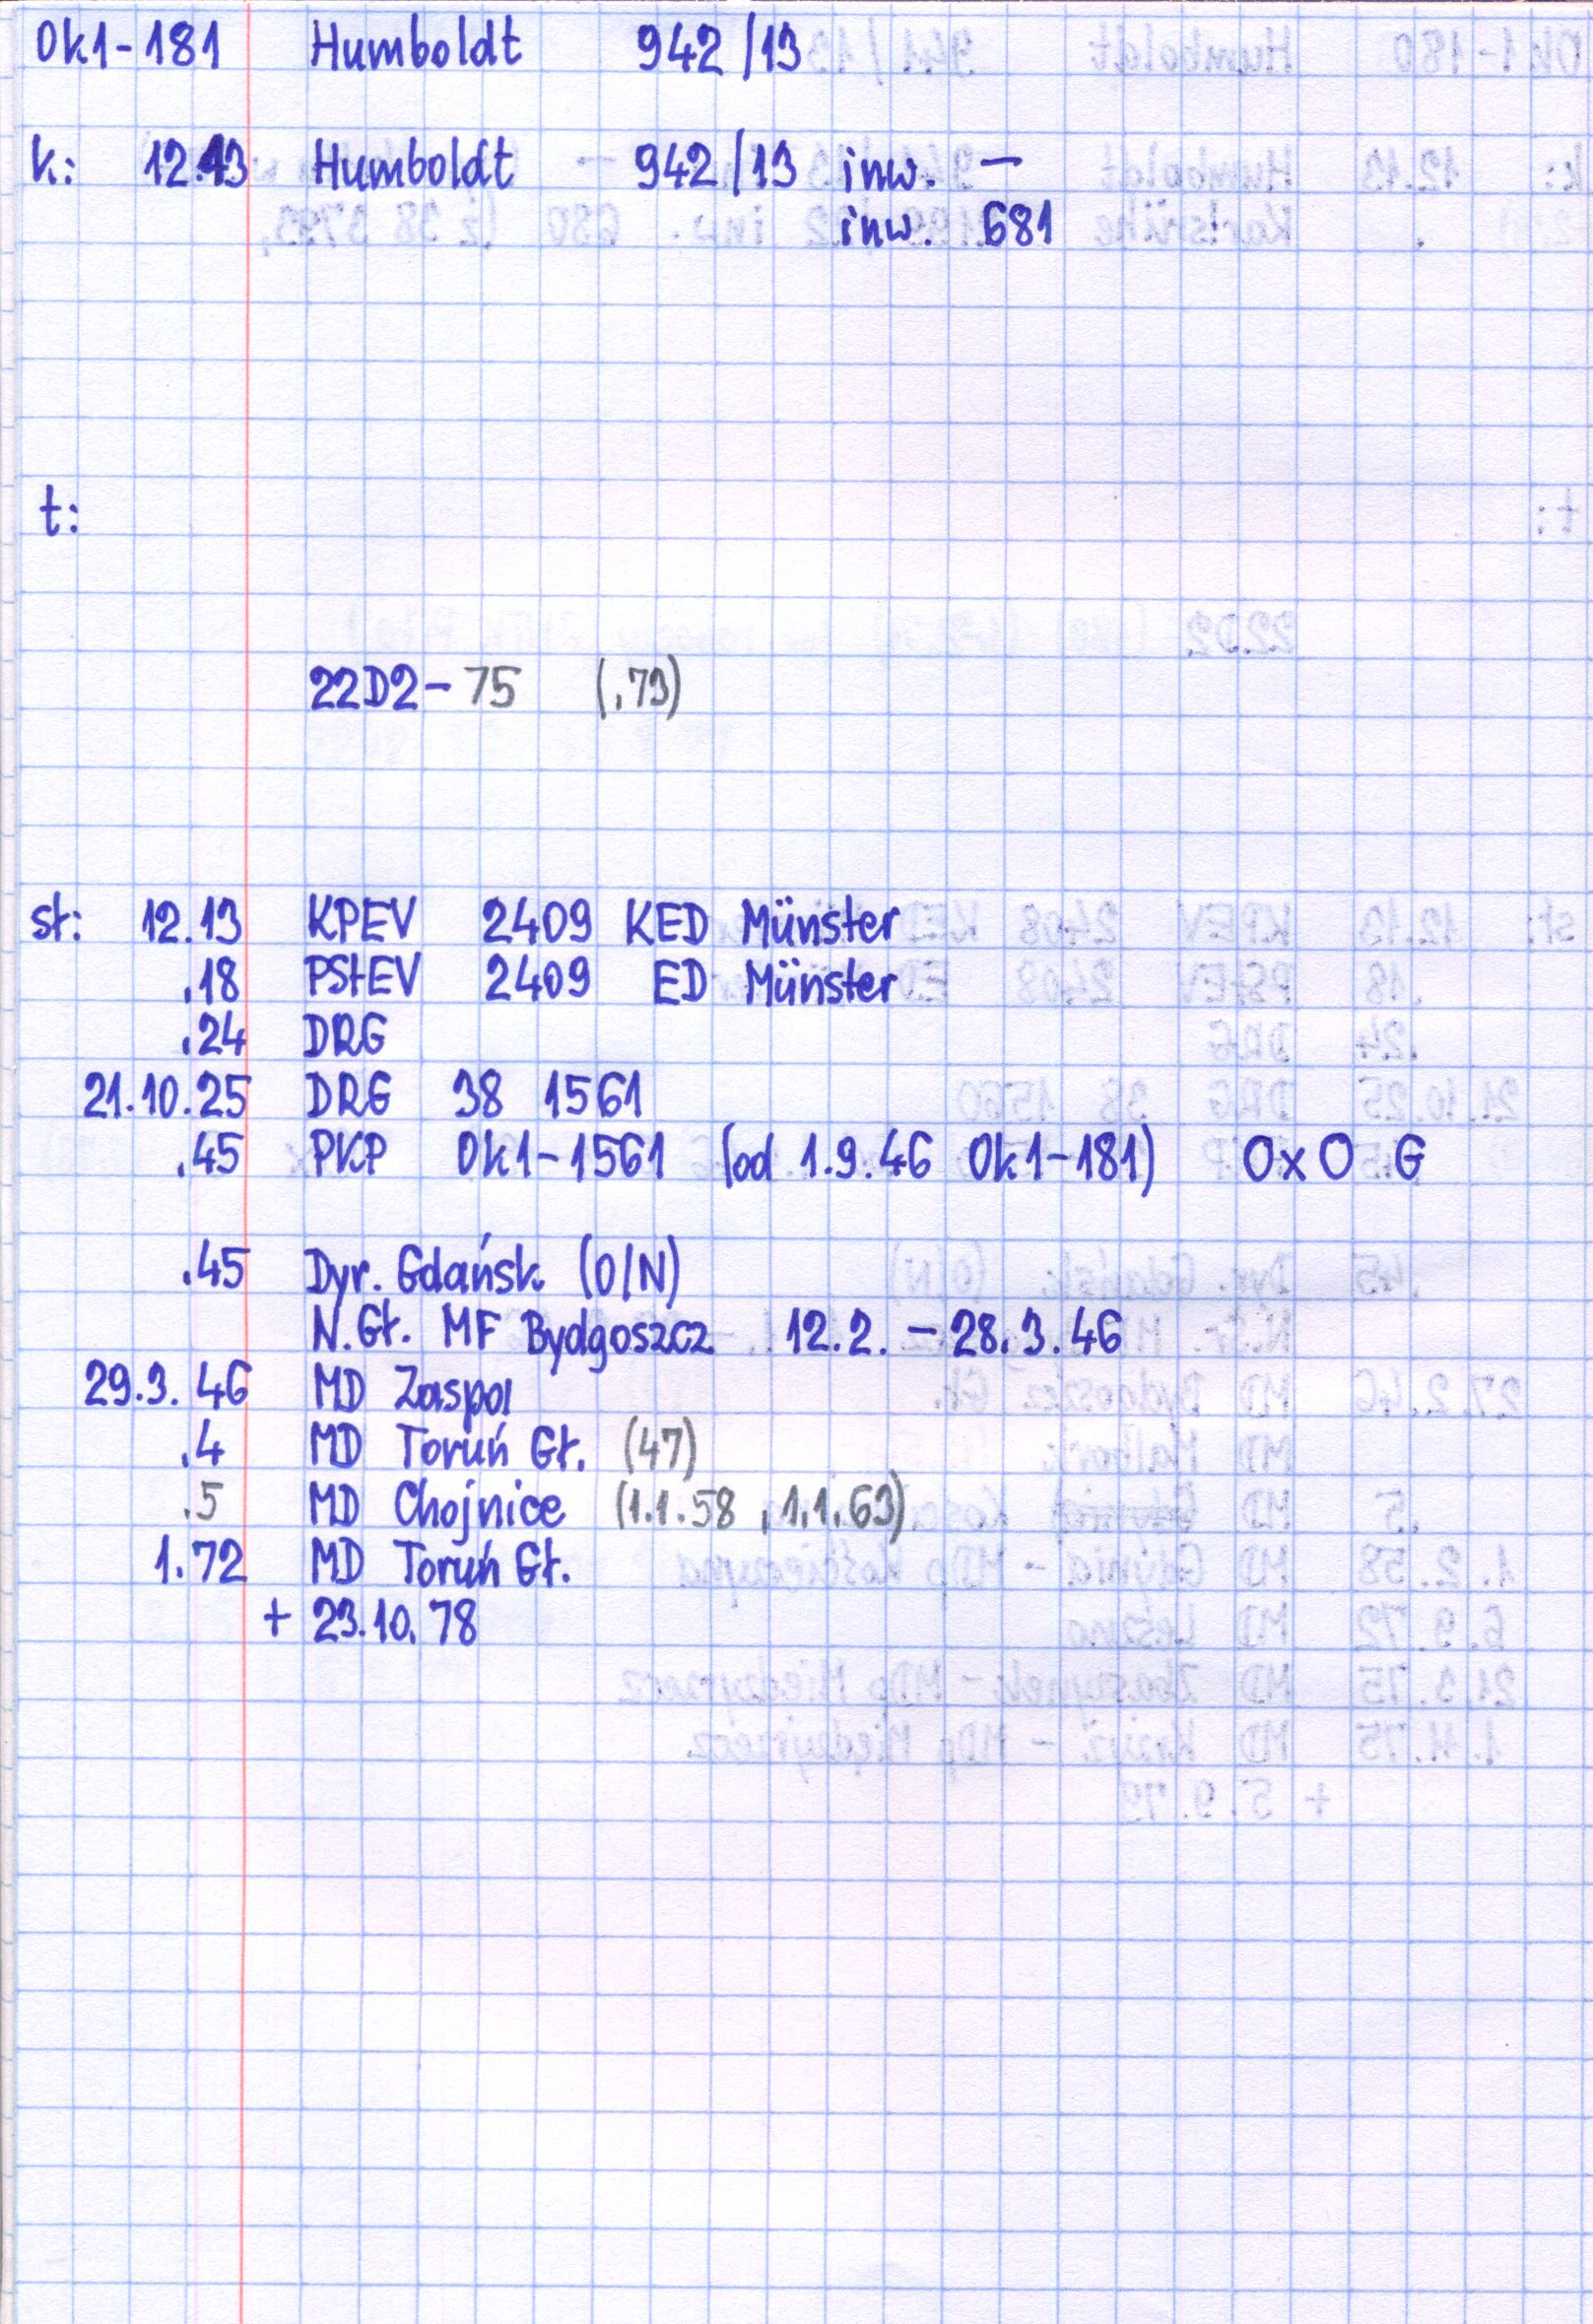 Ok1-181 Humboldt 942/13
k: 12.13 Humboldt 942/13 inw. —
inw. 681
t:
22D2-75 (.73)
st: 12.13 KPEV 2409 KED Münster
.18 PStEV 2409 ED Münster
.24 DRG
21.10.25 DRG 38 1561
.45 PKP Ok1-1561 (od 1.9.46 Ok1-181) OxO G
.45 Dyr. Gdańsk (O/N)
N.Gł. MF Bydgoszcz 12.2. - 28.3.46
29.3.46 MD Zaspa
.4 MD Toruń Gł. (47)
.5 MD Chojnice (1.1.58, 1.1.63)
1.72 MD Toruń Gł.
+ 23.10.78